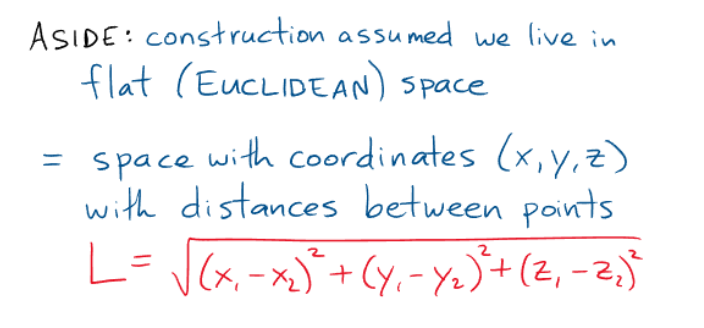 ASIDE: construction assumed we live in
flat (EUCLIDEAN) space
= space with coordinates (x,y,z)
with distances between points
L = √(x₁-x₂)² + (y₁-y₂)² + (z₁-z₂)²